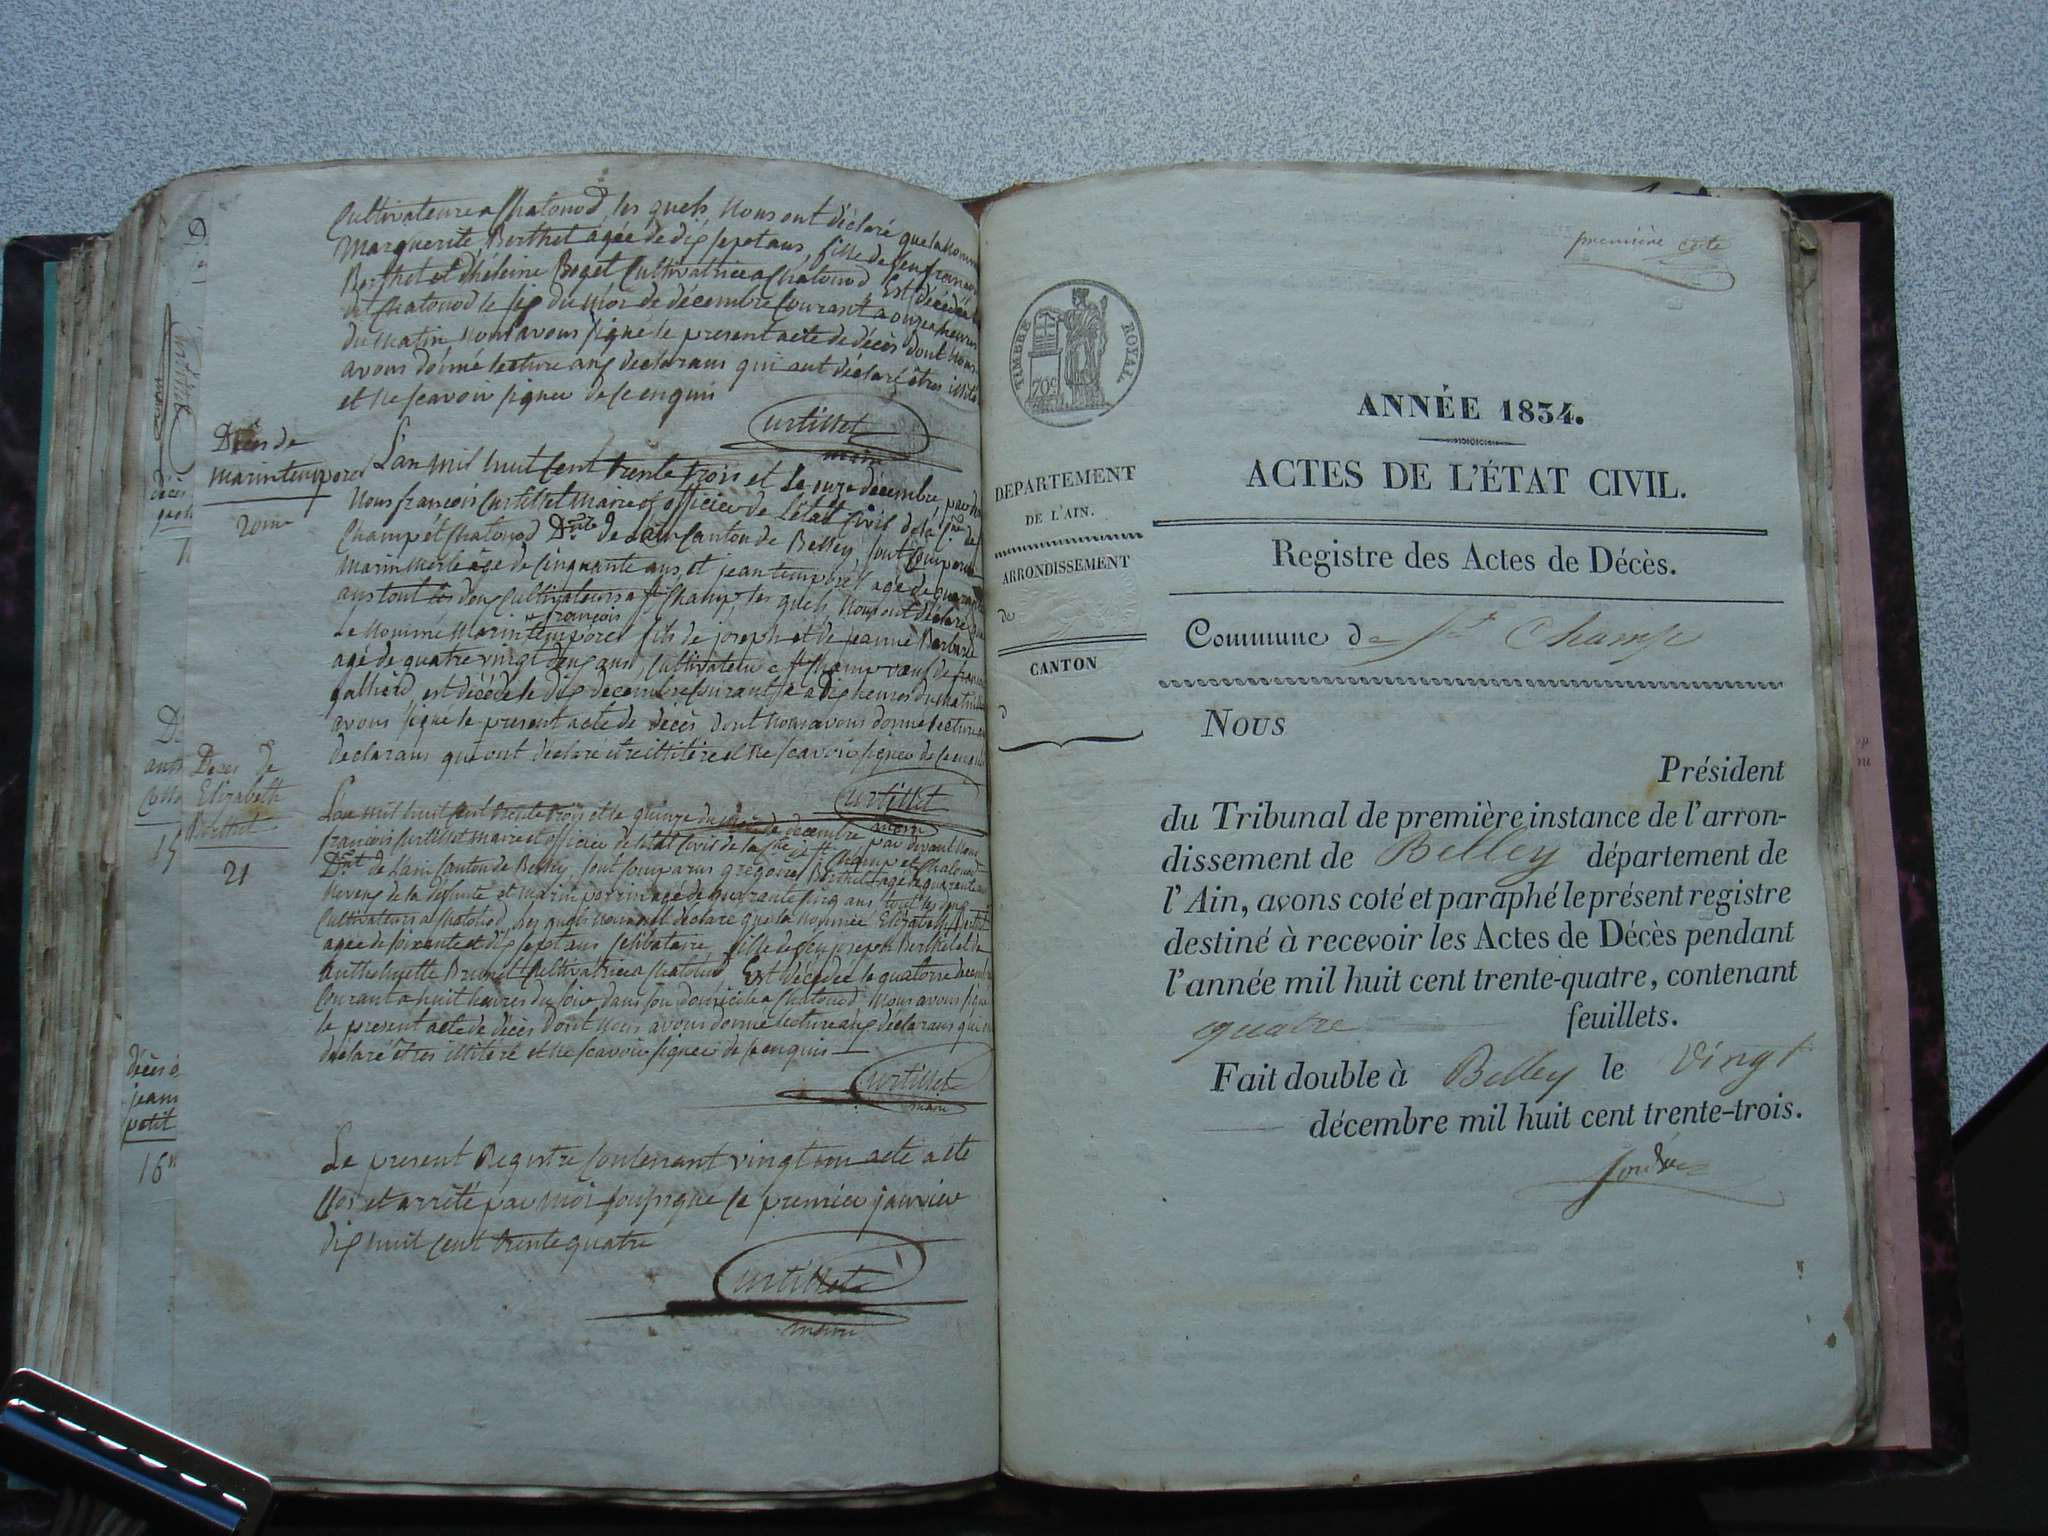 Cultivateurs a Chatonod, les quels Nous ont déclaré que la Nommé
Marguerite Berthet agée de dix sept ans, fille de feu francois
Berthet et d'héleine Boget Cultivatrice a Chatonod Est décédée
a Chatonod le six du mois de décembre Courant a onze heures
du Matin Nous avons signé le present acte de décès dont Nous
avons donné lecture aux declarans qui ont déclaré êtres illité
et Ne scavoir signer de ce enquis
Curtillet
maire
Décès de
marin tempore
20me
L'an mil huit Cent trente trois et Le onze décembre, par de
Nous françois Curtillet Maire et officier de L'état Civil de la Cne de
Champ et Chatonod Dmt de L'ain Canton de Belley, sont Comparus
Marin Merle âgé de Cinquante ans et jean tempore agé de quarante
ans tout les deux Cultivateurs a St Champ, les quels Nous ont déclaré que
françois
Le Nommé Marin tempore fils de joseph et de jeanne Barbare
agé de quatre vingt deux ans, Cultivateur a St Champ veuf de
est décédé le dix décembre Courant a dix heures du Matin
avons signé le present acte de décès dont Nous avons donné lecture
declarans qui ont déclaré etre illitéré et Ne scavoir signer de ce enquis
Curtillet
maire
Deces de
Elizabeth
Berthet
21
L'an mil huit Cent trente trois et le quinze du mois de décembre par devant Nous
françois Curtillet maire et officier de l'état Civil de la Cne de St Champ et Chatonod
Dmt de L'ain Canton de Belley, sont Comparus gregoire Berthet agé de quarante
Neveux de la defunte et Marin perrin agé de quarante Cinq ans tout les deux
Cultivateurs a Chatonod, les quels Nous ont déclaré que la Nommée Elizabeth Berthet
agée de soixante et dix sept ans Célibataire, fille de feu joseph Berthet et de
Anthelmette Brunet Cultivatrice a Chatonod Est décédée le quatorze décembre
Courant a huit heures du soir dans son domicile a Chatonod Nous avons signé
le present acte de décès Dont Nous avons donné lecture aux déclarans qui
déclaré êtres illitéré et Ne scavoir signer de ce enquis
Curtillet
maire
Le present Registre Contenant vingt un acte a été
Clos et arrêté par moi soussigné le premier janvier
dix huit Cent trente quatre
Curtillet
maire
décès
jean
petit
16
première cote
TIMBRE ROYAL
70c
ANNÉE 1834.
ACTES DE L'ÉTAT CIVIL.
DEPARTEMENT
DE L'AIN.
ARRONDISSEMENT
de
CANTON
d
Registre des Actes de Décès.
Commune de St Champ
Nous
Président
du Tribunal de première instance de l'arron-
dissement de Belley département de
l'Ain, avons coté et paraphé le présent registre
destiné à recevoir les Actes de Décès pendant
l'année mil huit cent trente-quatre, contenant
quatre feuillets.
Fait double à Belley le vingt
décembre mil huit cent trente-trois.